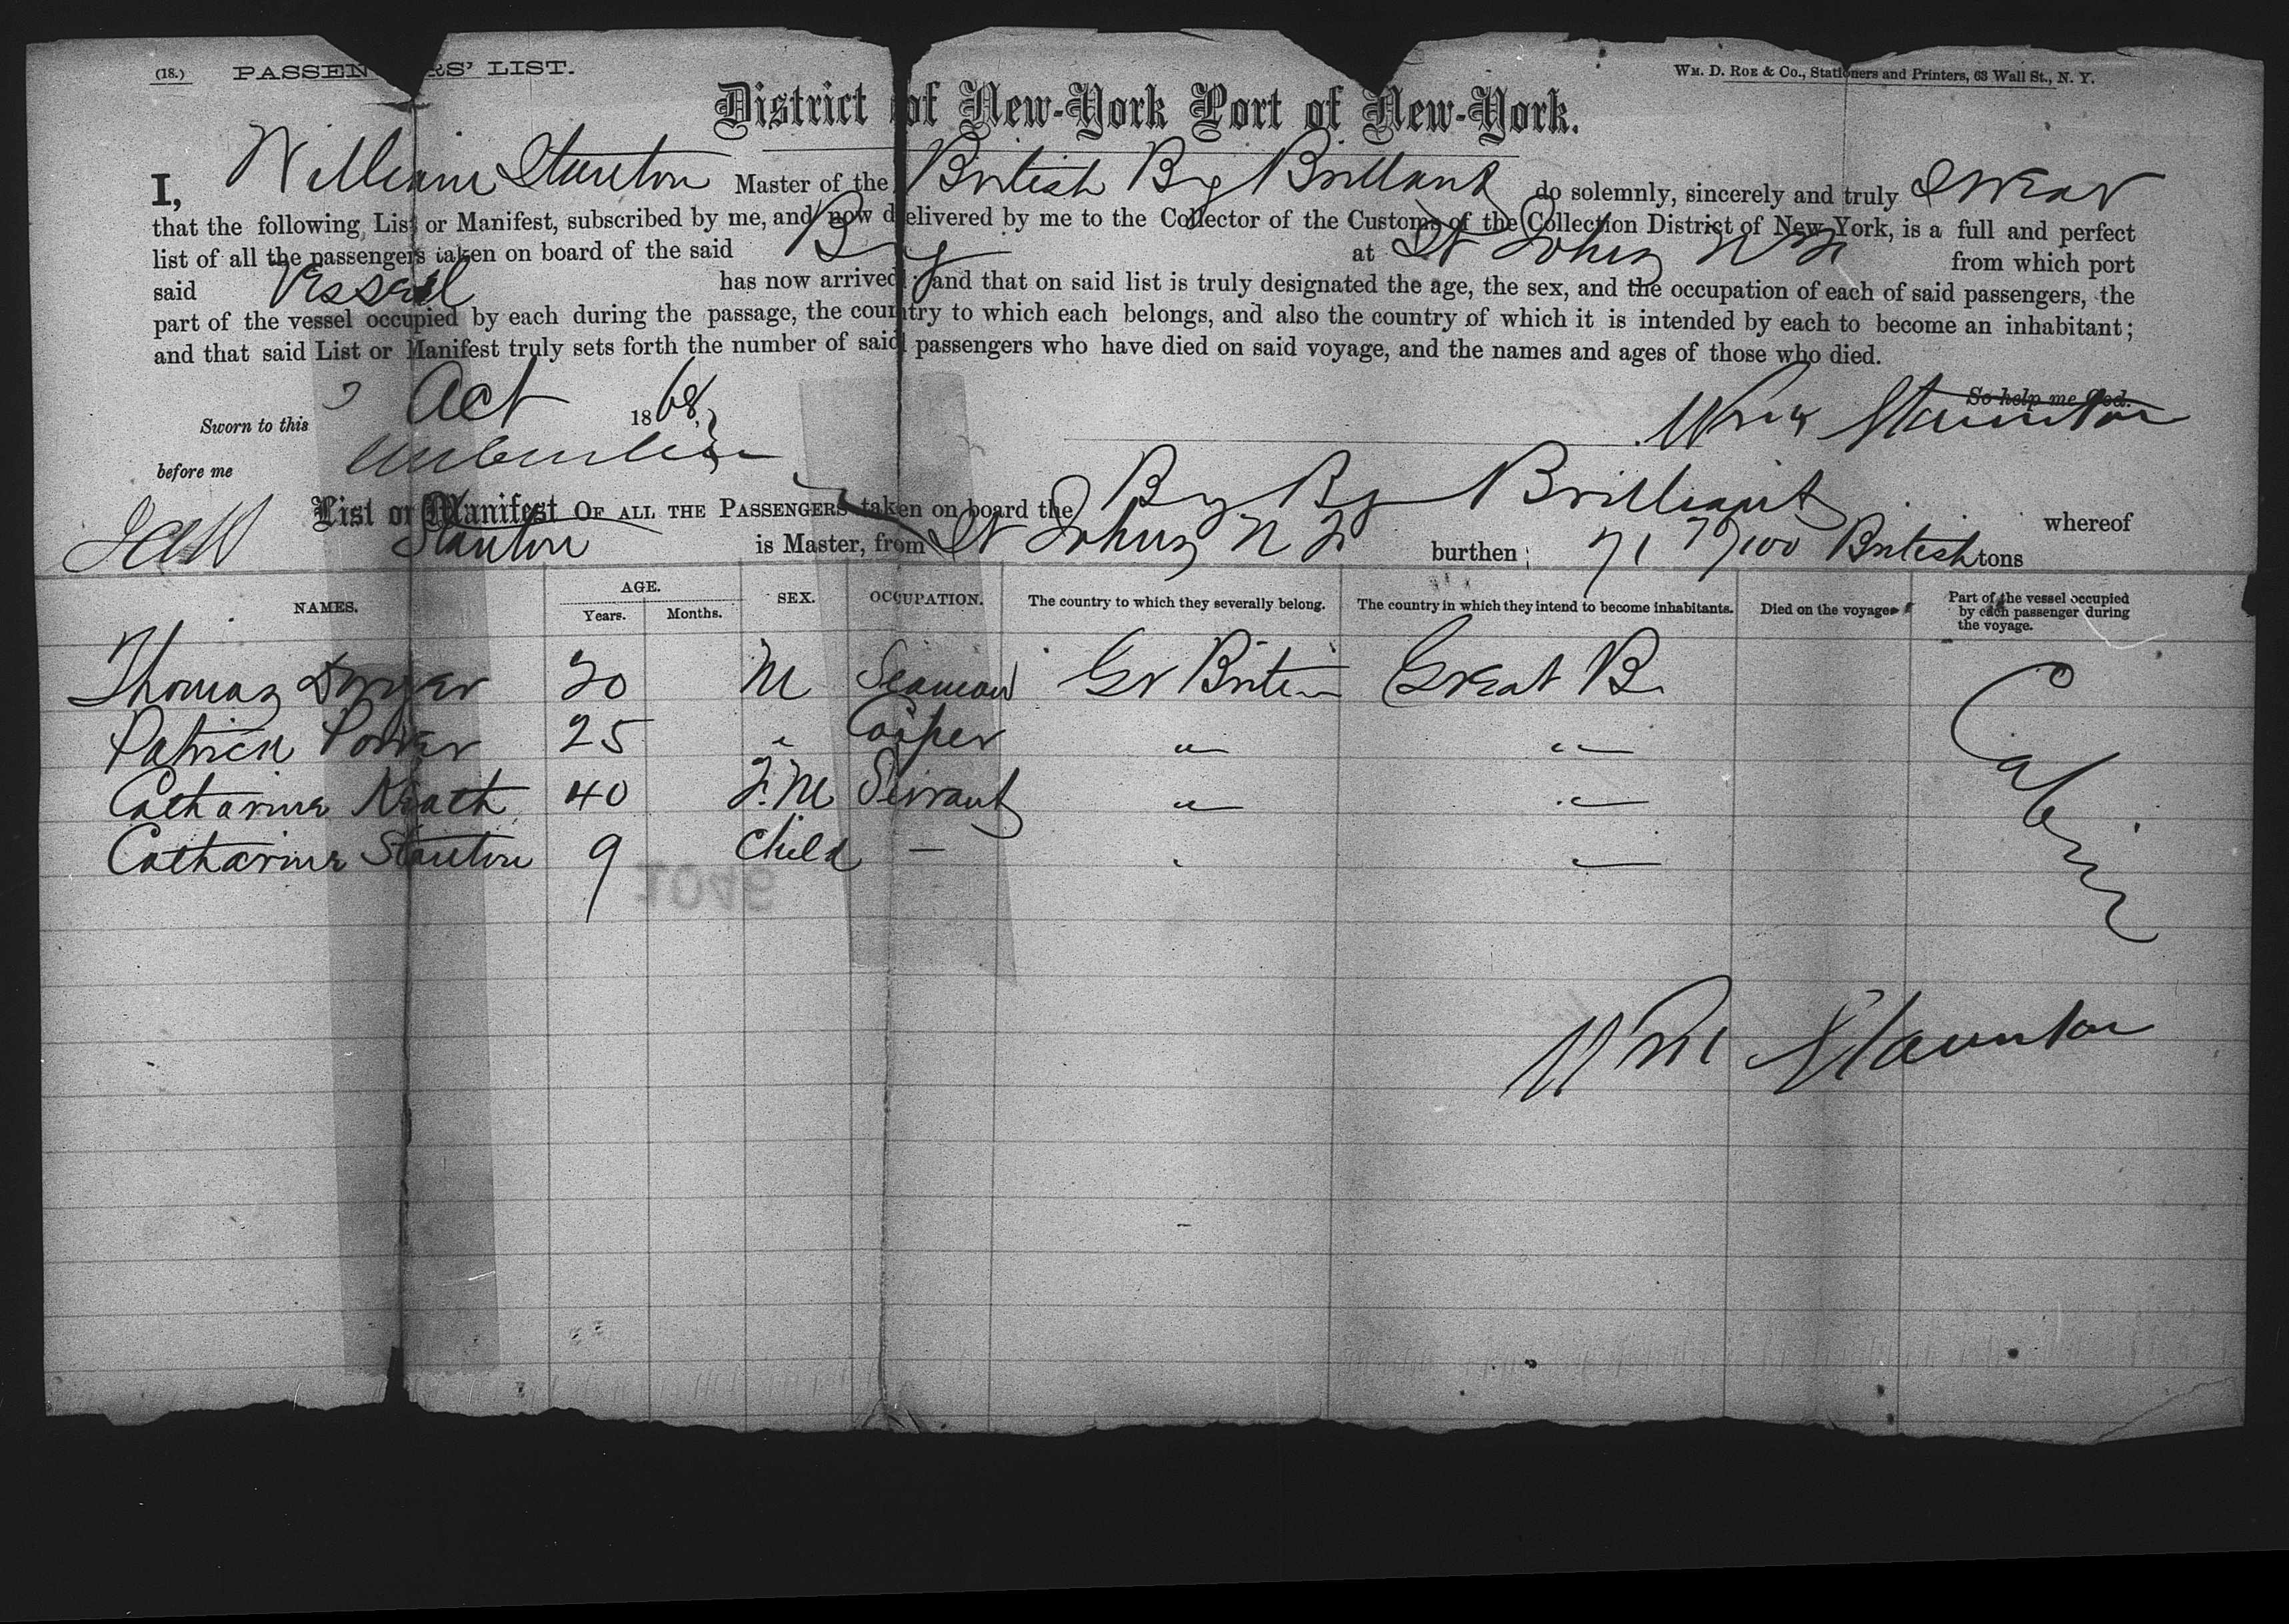 (18.) PASSENGERS' LIST.
WM. D. ROE & Co., Stationers and Printers, 63 Wall St., N. Y.
District of New-York Port of New-York.
I, William Staunton Master of the British Brg Brillant do solemnly, sincerely and truly swear
that the following List or Manifest, subscribed by me, and now delivered by me to the Collector of the Customs of the Collection District of New York, is a full and perfect
list of all the passengers taken on board of the said Brg at St Johns N F from which port
said Vessel has now arrived; and that on said list is truly designated the age, the sex, and the occupation of each of said passengers, the
part of the vessel occupied by each during the passage, the country to which each belongs, and also the country of which it is intended by each to become an inhabitant;
and that said List or Manifest truly sets forth the number of said passengers who have died on said voyage, and the names and ages of those who died.
So help me God.
Sworn to this Oct 1868,
Wm Staunton
before me
List or Manifest OF ALL THE PASSENGERS taken on board the Brg Brilliant whereof
Stanton is Master, from St Johns N F burthen 71 77/100 British tons
NAMES. AGE. Years. Months. SEX. OCCUPATION. The country to which they severally belong. The country in which they intend to become inhabitants. Died on the voyage. Part of the vessel occupied by each passenger during the voyage.
Thomas Dwyer 20 M Seaman Gr Britain Great B. Cabin
Patrick Power 25 " Cooper " "
Catharine Keath 40 F.M Servant " "
Catharine Stanton 9 Child — " "
1046
Wm Staunton